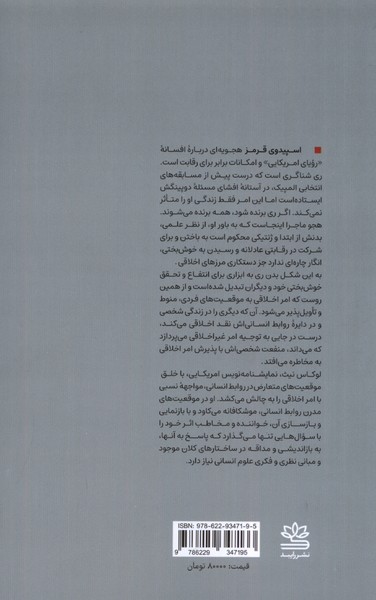 اسپیدوی قرمز هجویه‌ای دربارهٔ افسانهٔ
«رؤیای امریکایی» و امکانات برابر برای رقابت است.
ری شناگری است که درست پیش از مسابقه‌های
انتخابی المپیک، در آستانهٔ افشای مسئلهٔ دوپینگش
ایستاده‌است اما این امر فقط زندگی او را متأثر
نمی‌کند. اگر ری برنده شود، همه برنده می‌شوند.
هجو ماجرا اینجاست که به باور او، از نظر علمی،
بدنش از ابتدا و ژنتیکی محکوم است به باختن و برای
شرکت در رقابتی عادلانه و رسیدن به خوش‌بختی،
انگار چاره‌ای ندارد جز دستکاری مرزهای اخلاقی.
به این شکل بدن ری به ابزاری برای انتفاع و تحقق
خوش‌بختی خود و دیگران تبدیل شده‌است و از همین
روست که امر اخلاقی به موقعیت‌های فردی، منوط
و تأویل‌پذیر می‌شود. آن که دیگری را در زندگی شخصی
و در دایرهٔ روابط انسانی‌اش نقد اخلاقی می‌کند،
درست در جایی به توجیه امر غیراخلاقی می‌پردازد
که می‌داند، منفعت شخصی‌اش با پذیرش امر اخلاقی
به مخاطره می‌افتد.
لوکاس نیث، نمایشنامه‌نویس امریکایی، با خلق
موقعیت‌های متعارض در روابط انسانی، مواجههٔ نسبی
با امر اخلاقی را به چالش می‌کشد. او در موقعیت‌های
مدرن روابط انسانی، موشکافانه می‌کاود و با بازنمایی
و بازسازی آن، خواننده و مخاطب اثر خود را
با سؤال‌هایی تنها می‌گذارد که پاسخ به آنها،
به بازاندیشی و مداقه در ساختارهای کلان موجود
و مبانی نظری و فکری علوم انسانی نیاز دارد.
ISBN: 978-622-93471-9-5
9 786229 347195
نشر رایبد
قیمت: ۸۰۰۰۰ تومان